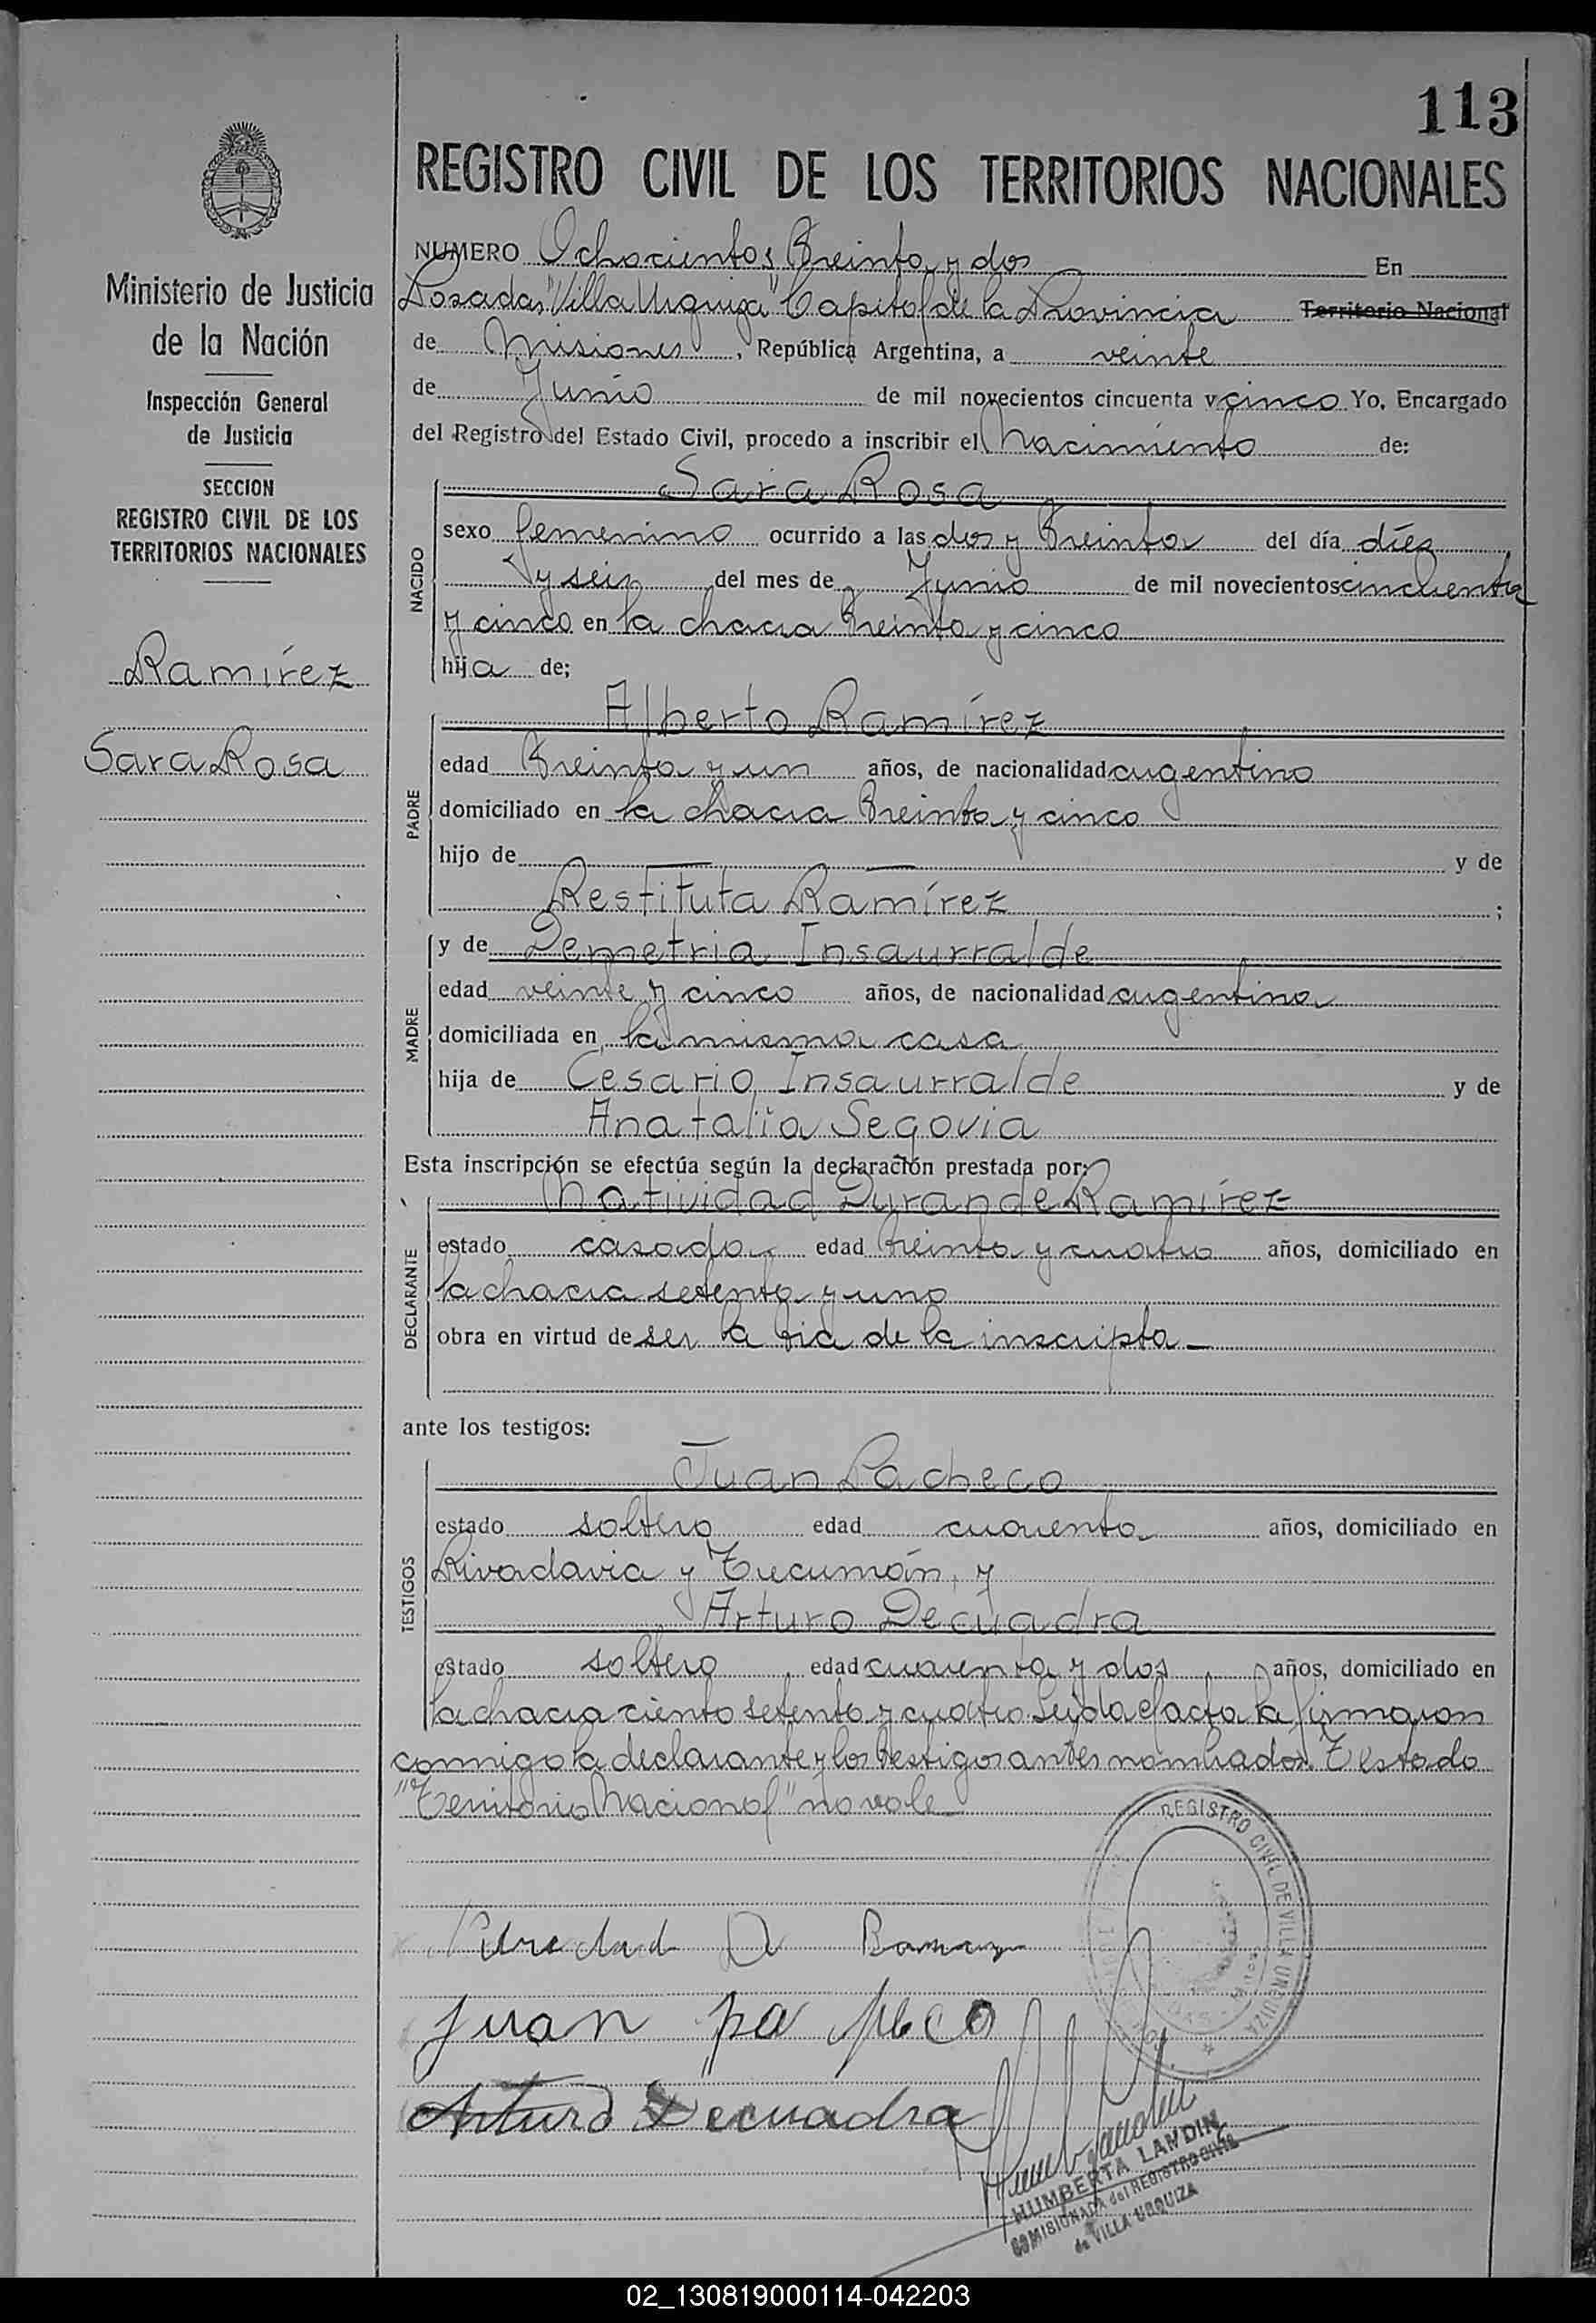 113
REGISTRO CIVIL DE LOS TERRITORIOS NACIONALES
Ministerio de Justicia
de la Nación
Inspección General
de Justicia
SECCION
REGISTRO CIVIL DE LOS
TERRITORIOS NACIONALES
Ramírez
Sara Rosa
NUMERO Ochocientos Treinta y dos En
Posadas "Villa Urquiza" Capital de la Provincia Territorio Nacional
de Misiones, República Argentina, a veinte
de Junio de mil novecientos cincuenta y cinco Yo, Encargado
del Registro del Estado Civil, procedo a inscribir el Nacimiento de:
NACIDO
Sara Rosa
sexo femenino ocurrido a las dos y Treinta del día diez
y seis del mes de Junio de mil novecientos cincuenta
y cinco en la chacra Treinta y cinco
hija de;
PADRE
Alberto Ramírez
edad Treinta y un años, de nacionalidad argentino
domiciliado en la chacra Treinta y cinco
hijo de y de
Restituta Ramírez ;
MADRE
y de Demetria Insaurralde
edad veinte y cinco años, de nacionalidad argentina
domiciliada en la misma casa
hija de Cesario Insaurralde y de
Anatalia Segovia
Esta inscripción se efectúa según la declaración prestada por:
DECLARANTE
Natividad Duran de Ramírez
estado casada edad Treinta y cuatro años, domiciliado en
la chacra setenta y uno
obra en virtud de ser la tia de la inscripta
ante los testigos:
TESTIGOS
Juan Pacheco
estado soltero edad cuarenta años, domiciliado en
Rivadavia y Tucumán, y
Arturo Decuadra
estado soltero, edad cuarenta y dos, años, domiciliado en
la chacra ciento setenta y cuatro. Leída el acta la firmaron
conmigo la declarante y los testigos antes nombrados. Testado
"Territorio Nacional" no vale
D
juan pa checo
Arturo Decuadra
REGISTRO CIVIL DE VILLA URQUIZA
HUMBERTA LANDIN
COMISIONADA del REGISTRO CIVIL
de VILLA URQUIZA
02_130819000114-042203